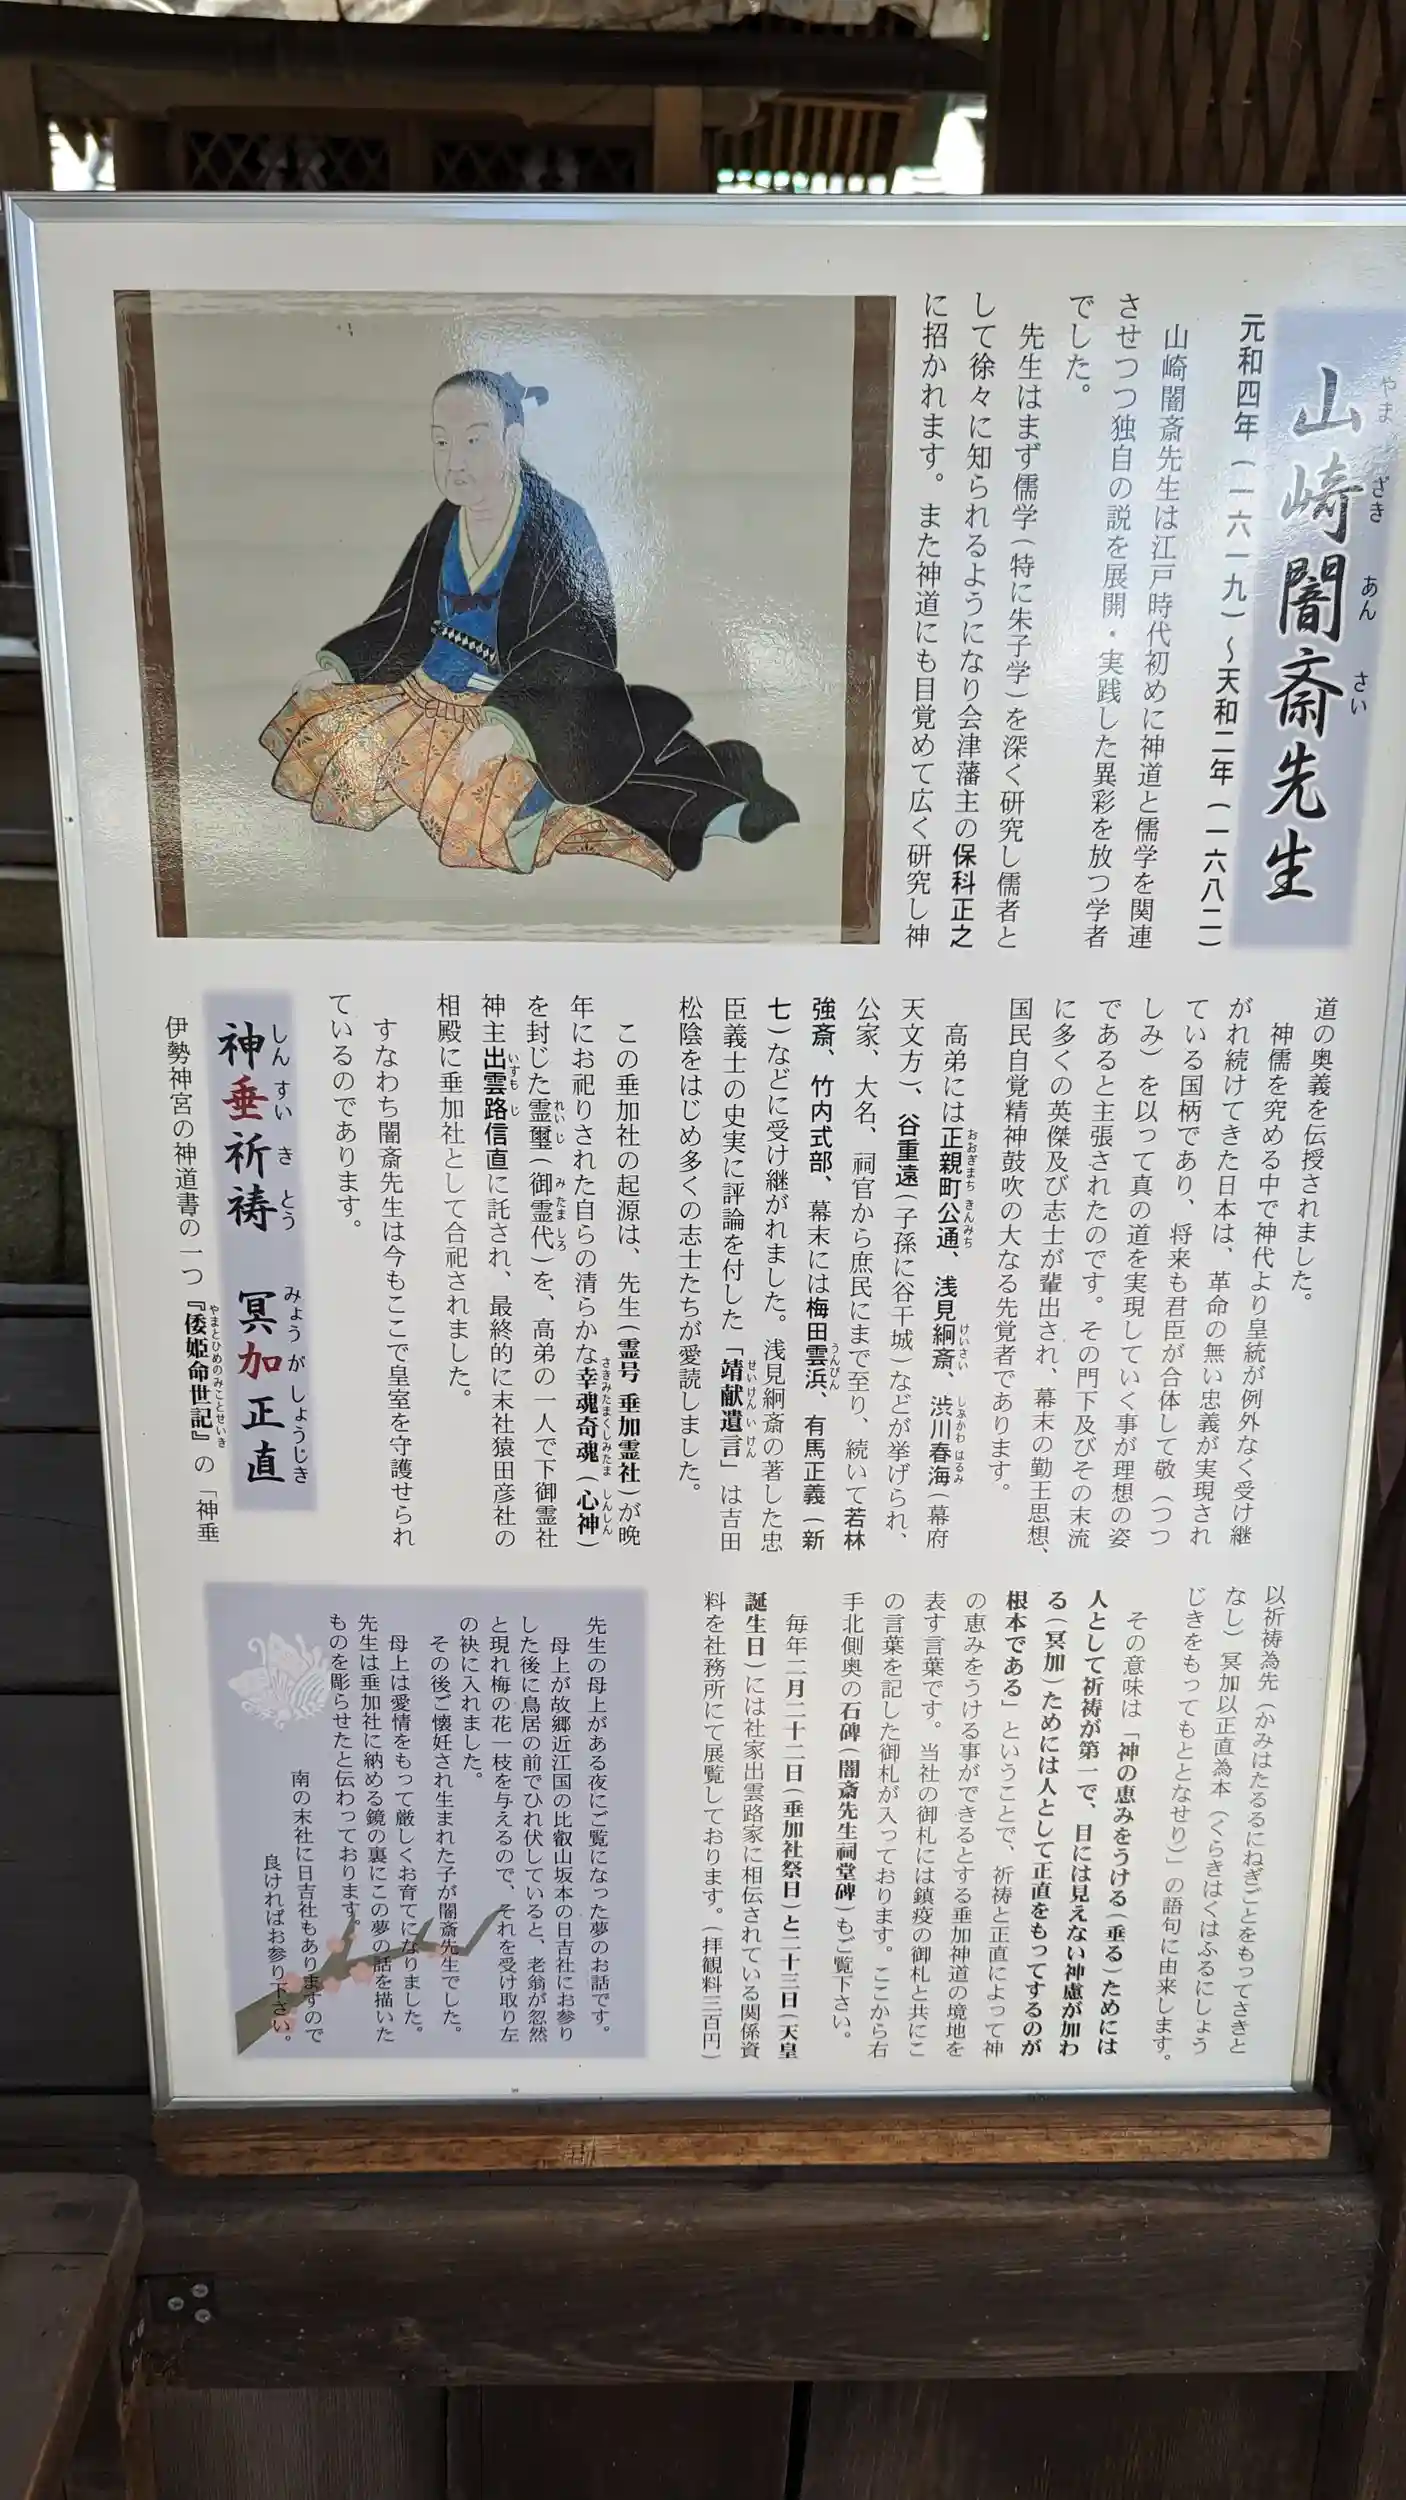 山崎闇斎先生
やま ざき あん さい
元和四年（一六一九）～天和二年（一六八二）
山崎闇斎先生は江戸時代初めに神道と儒学を関連
させつつ独自の説を展開・実践した異彩を放つ学者
でした。
先生はまず儒学（特に朱子学）を深く研究し儒者と
して徐々に知られるようになり会津藩主の保科正之
に招かれます。また神道にも目覚めて広く研究し神
道の奥義を伝授されました。
神儒を究める中で神代より皇統が例外なく受け継
がれ続けてきた日本は、革命の無い忠義が実現され
ている国柄であり、将来も君臣が合体して敬（つつ
しみ）を以って真の道を実現していく事が理想の姿
であると主張されたのです。その門下及びその末流
に多くの英傑及び志士が輩出され、幕末の勤王思想、
国民自覚精神鼓吹の大なる先覚者であります。
高弟には正親町公通、浅見絅斎、渋川春海（幕府
おおぎまち きんみち けいさい しぶかわ はるみ
天文方）、谷重遠（子孫に谷干城）などが挙げられ、
公家、大名、祠官から庶民にまで至り、続いて若林
強斎、竹内式部、幕末には梅田雲浜、有馬正義（新
うんぴん
七）などに受け継がれました。浅見絅斎の著した忠
臣義士の史実に評論を付した「靖献遺言」は吉田
せいけん いげん
松陰をはじめ多くの志士たちが愛読しました。
この垂加社の起源は、先生（霊号 垂加霊社）が晩
年にお祀りされた自らの清らかな幸魂奇魂（心神）
さきみたまくしみたま しんしん
を封じた霊璽（御霊代）を、高弟の一人で下御霊社
れいじ みたましろ
神主出雲路信直に託され、最終的に末社猿田彦社の
いずもじ
相殿に垂加社として合祀されました。
すなわち闇斎先生は今もここで皇室を守護せられ
ているのであります。
神垂祈祷 冥加正直
しん すい き とう みょう が しょうじき
伊勢神宮の神道書の一つ『倭姫命世記』の「神垂
やまとひめのみことせいき
以祈祷為先（かみはたるるにねぎごとをもってさきと
なし）冥加以正直為本（くらきはくはふるにしょう
じきをもってもととなせり）」の語句に由来します。
その意味は「神の恵みをうける（垂る）ためには
人として祈祷が第一で、目には見えない神慮が加わ
る（冥加）ためには人として正直をもってするのが
根本である」ということで、祈祷と正直によって神
の恵みをうける事ができるとする垂加神道の境地を
表す言葉です。当社の御札には鎮疫の御札と共にこ
の言葉を記した御札が入っております。ここから右
手北側奥の石碑（闇斎先生祠堂碑）もご覧下さい。
毎年二月二十二日（垂加社祭日）と二十三日（天皇
誕生日）には社家出雲路家に相伝されている関係資
料を社務所にて展覧しております。（拝観料三百円）
先生の母上がある夜にご覧になった夢のお話です。
母上が故郷近江国の比叡山坂本の日吉社にお参り
した後に鳥居の前でひれ伏していると、老翁が忽然
と現れ梅の花一枝を与えるので、それを受け取り左
の袂に入れました。
その後ご懐妊され生まれた子が闇斎先生でした。
母上は愛情をもって厳しくお育てになりました。
先生は垂加社に納める鏡の裏にこの夢の話を描いた
ものを彫らせたと伝わっております。
南の末社に日吉社もありますので
良ければお参り下さい。